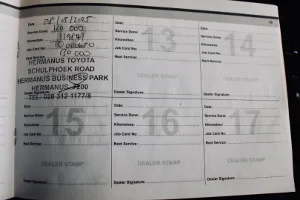 Date:
Service Done:
Kilometres:
Job Card No:
Next Service:
HERMANUS TOYOTA
SCHULPHOEK ROAD
HERMANUS BUSINESS PARK
HERMANUS 7200
TEL: 028 312 1177/8
Dealer Signature:
Date:
Service Done:
Kilometres:
Job Card No:
Next Service:
13
DEALER STAMP
Dealer Signature:
Date:
Service Done:
Kilometres:
Job Card No:
Next Service:
14
DEALER STAMP
Dealer Signature:
Date:
Service Done:
Kilometres:
Job Card No:
Next Service:
15
DEALER STAMP
Dealer Signature:
Date:
Service Done:
Kilometres:
Job Card No:
Next Service:
16
DEALER STAMP
Dealer Signature:
Date:
Service Done:
Kilometres:
Job Card No:
Next Service:
17
DEALER STAMP
Dealer Signature: